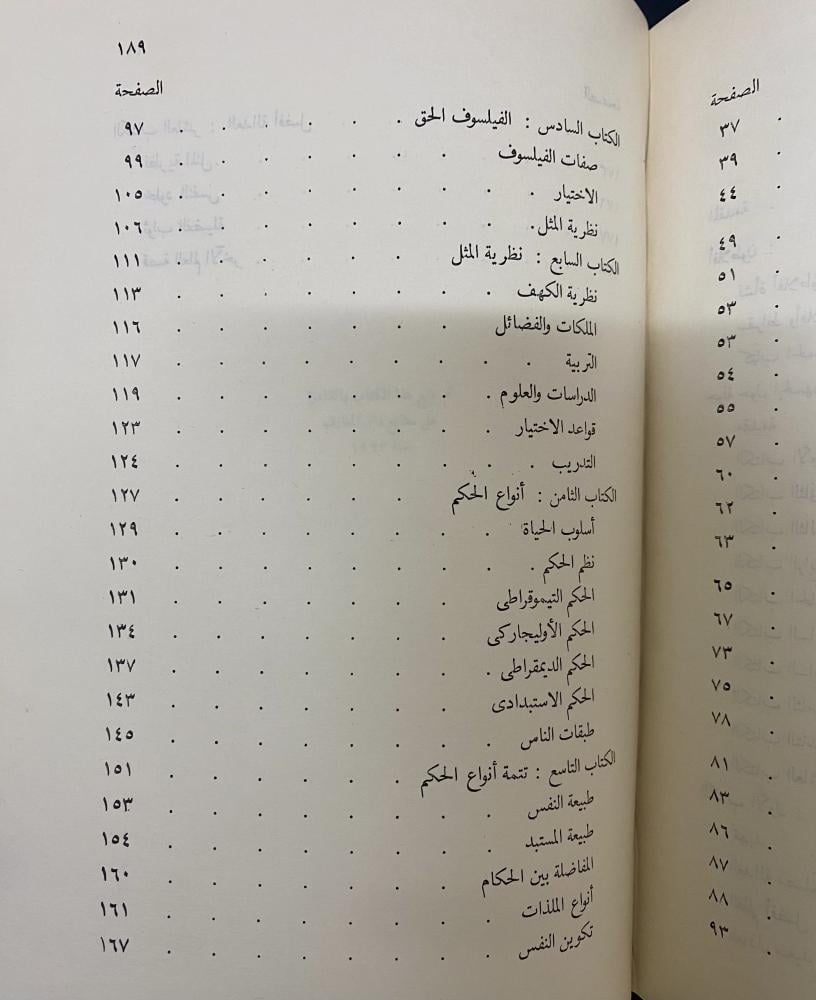 ١٨٩
الصفحة
الكتاب السادس : الفيلسوف الحق . . . . . . ٩٧
صفات الفيلسوف . . . . . . ٩٩
الاختيار . . . . . . . . ١٠٥
نظرية المثل . . . . . . . . ١٠٦
الكتاب السابع : نظرية المثل . . . . . . ١١١
نظرية الكهف . . . . . . . ١١٣
الملكات والفضائل . . . . . . ١١٦
التربية . . . . . . . . ١١٧
الدراسات والعلوم . . . . . . . ١١٩
قواعد الاختيار . . . . . . . ١٢٣
التدريب . . . . . . . . ١٢٤
الكتاب الثامن : أنواع الحكم . . . . . . ١٢٧
أسلوب الحياة . . . . . . . ١٢٩
نظم الحكم . . . . . . . . ١٣٠
الحكم التيموقراطى . . . . . . ١٣١
الحكم الأوليجاركى . . . . . . ١٣٤
الحكم الديمقراطى . . . . . . . ١٣٧
الحكم الاستبدادى . . . . . . ١٤٣
طبقات الناس . . . . . . . ١٤٥
الكتاب التاسع : تتمة أنواع الحكم . . . . . . ١٥١
طبيعة النفس . . . . . . . ١٥٣
طبيعة المستبد . . . . . . . ١٥٤
المفاضلة بين الحكام . . . . . . ١٦٠
أنواع الملذات . . . . . . . ١٦١
تكوين النفس . . . . . . . ١٦٧
الصفحة
٣٧
٣٩
٤٤
٤٩
٥١
٥٣
٥٣
٥٤
٥٥
٥٧
٦٠
٦٢
٦٣
٦٥
٦٧
٧٣
٧٥
٧٨
٨١
٨٣
٨٦
٨٧
٨٨
٩٣